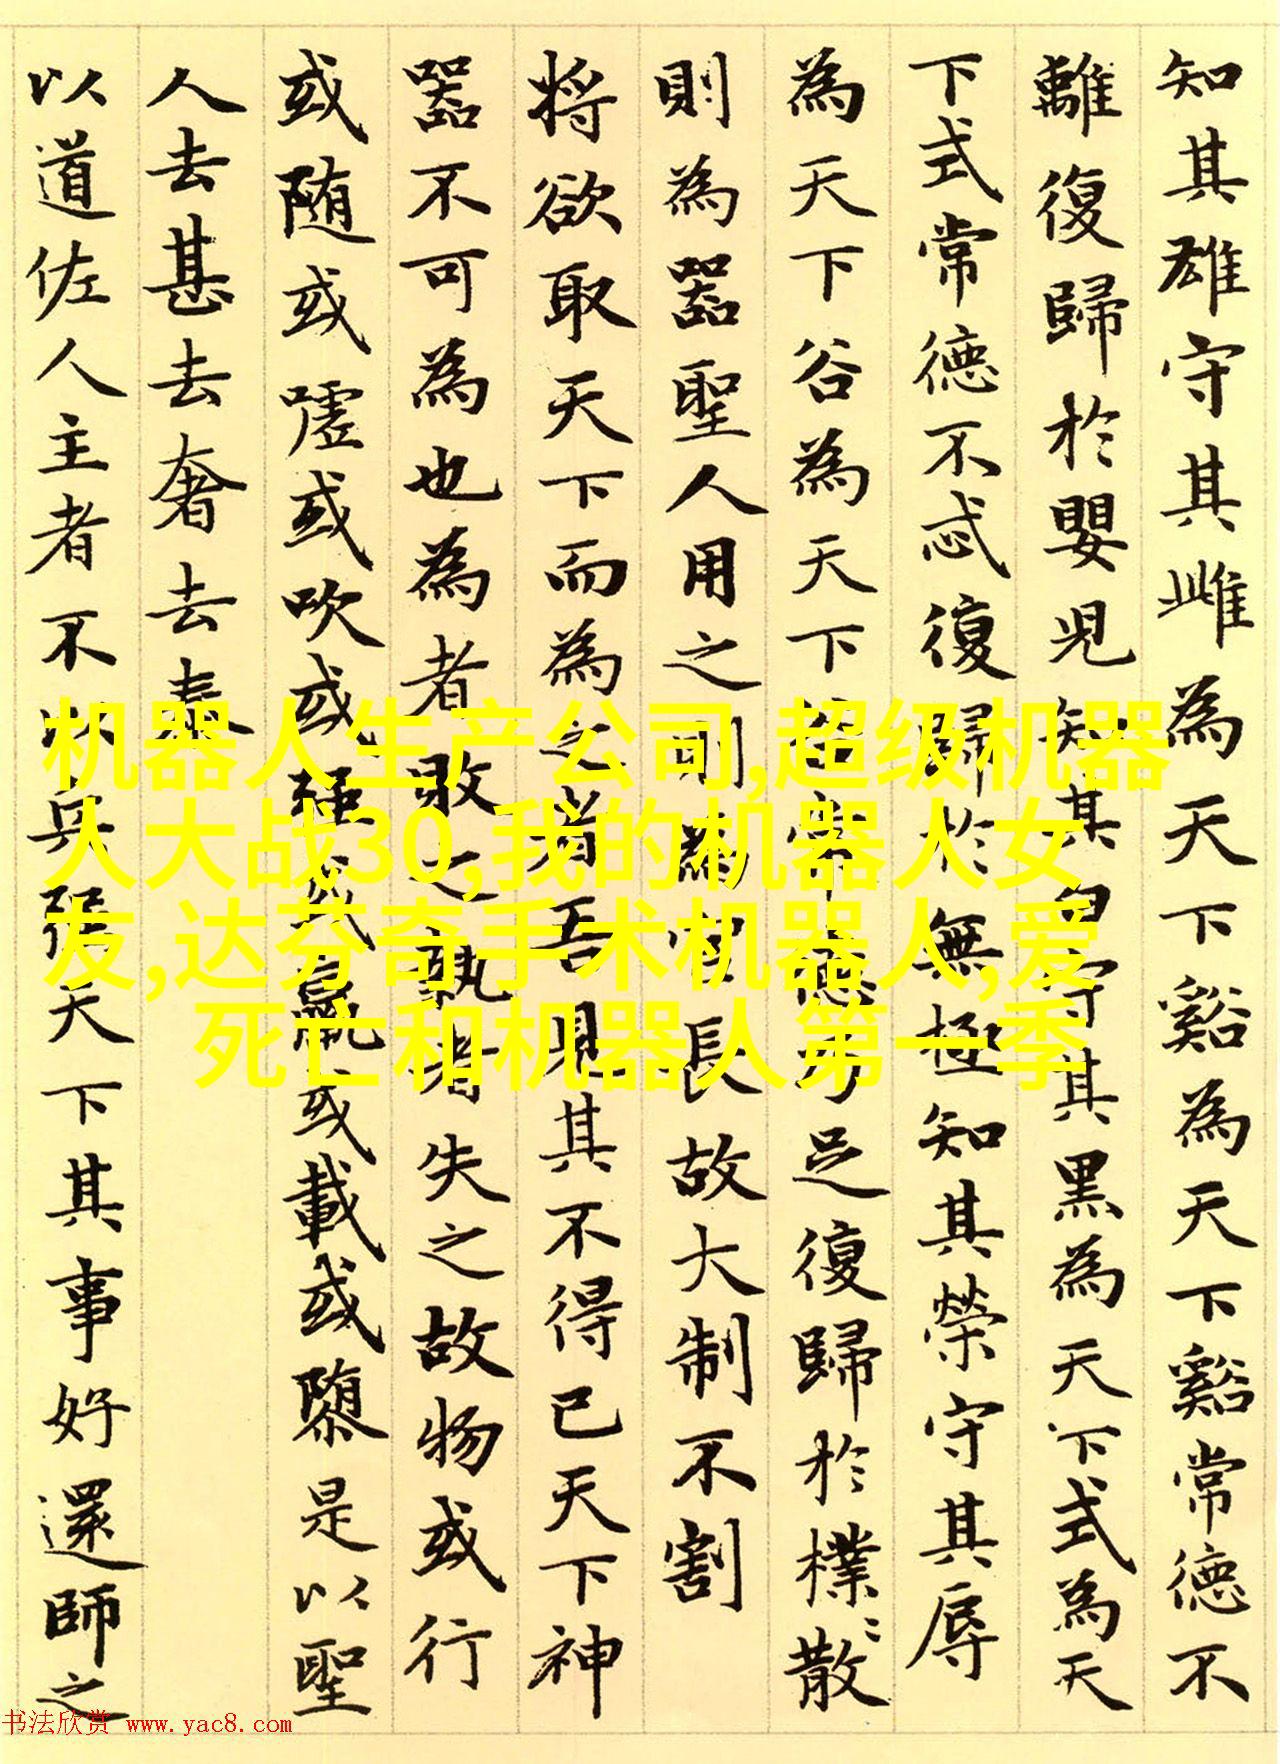 知其雄守其雌為天下谿為天下谿常德不
離復歸於嬰兒知其白守其黑為天下式為天
下式常德不忒復歸於無極知其榮守其辱
為天下谷為天下谷常德乃足復歸於樸〻散
則為器聖人用之則為官長故大制不割
将欲取天下而為之者吾見其不得已天下神
器不可為也為者敗之執者失之故物或行
或随或嘘或吹或强或羸或載或隳是以聖
人去甚去奢去泰
以道佐人主者不以兵强天下其事好還師之
机器人生产公司,超级机器
人大战30,我的机器人女
友,达芬奇手术机器人,爱
死亡和机器人第一季
书法欣赏 www.yac8.com